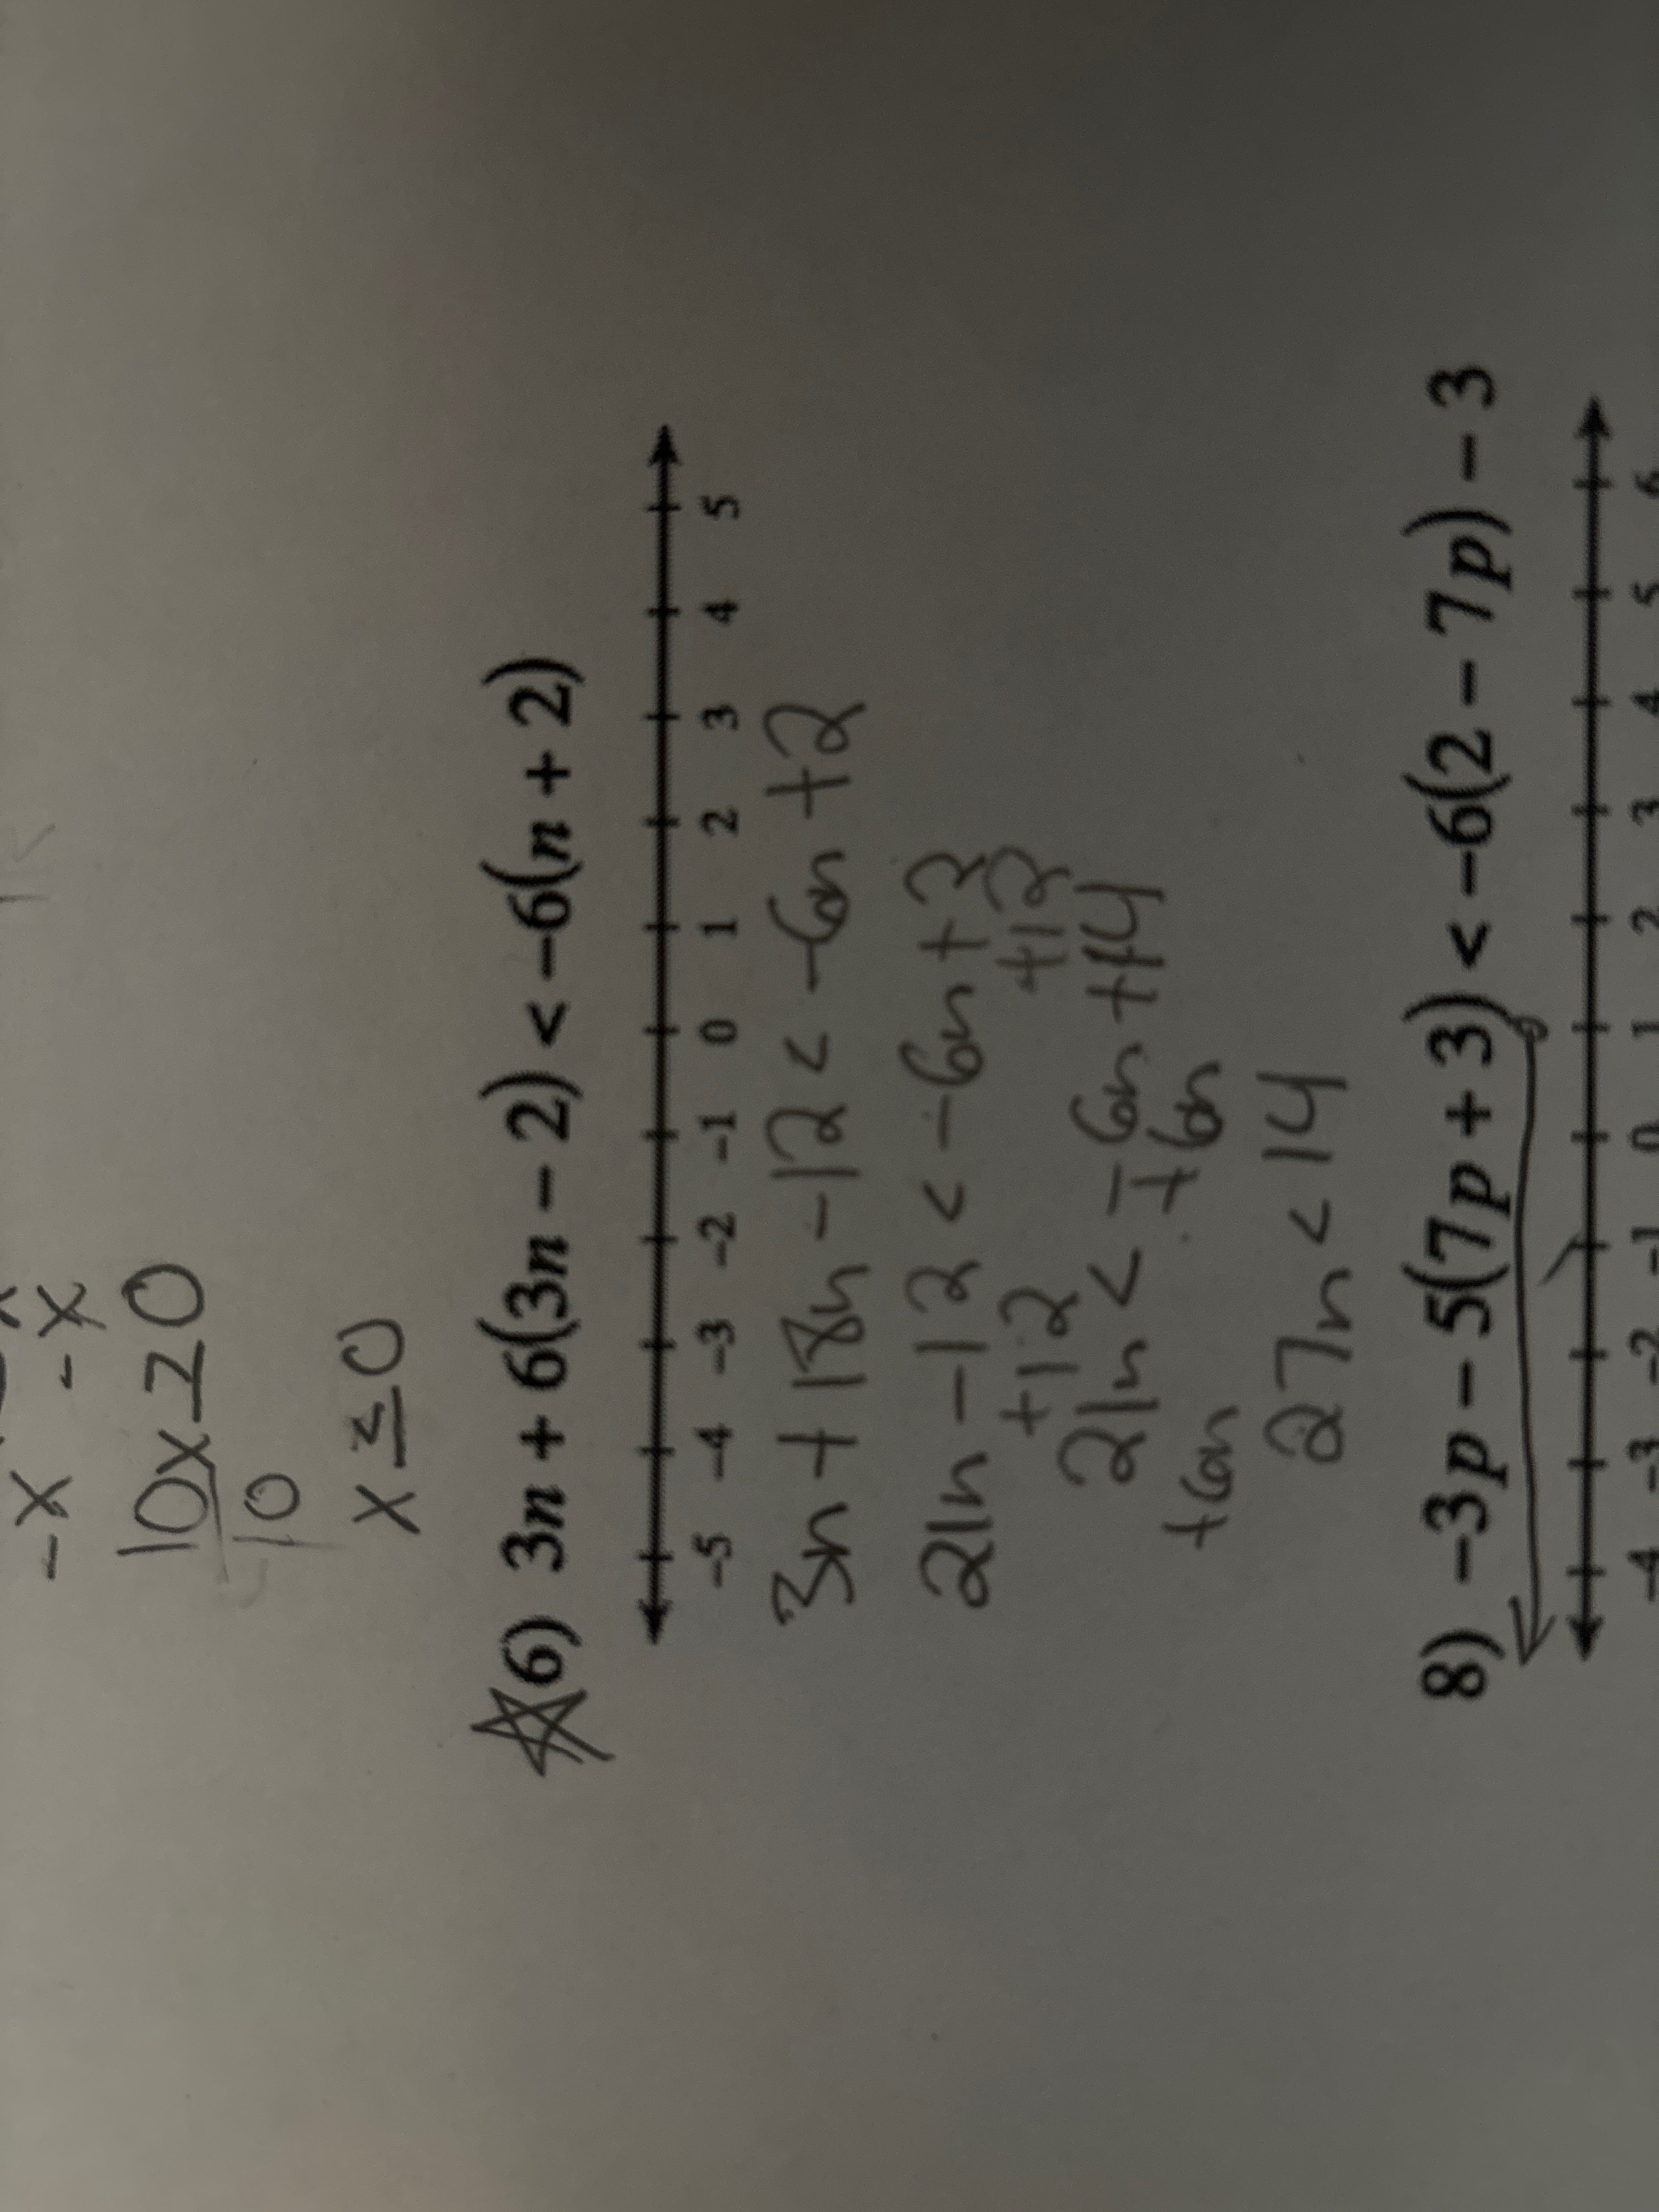 -x -x
10x≥0
10
x≤0
6) 3n + 6(3n − 2) < −6(n + 2)
−5 −4 −3 −2 −1 0 1 2 3 4 5
3n + 18n - 12 < -6n + 2
21n - 12 < -6n + 2
+12 +12
21n < -6n + 14
+6n +6n
27n < 14
8) −3p − 5(7p + 3) < −6(2 − 7p) − 3
−4 −3 −2 −1 0 1 2 3 4 5 6